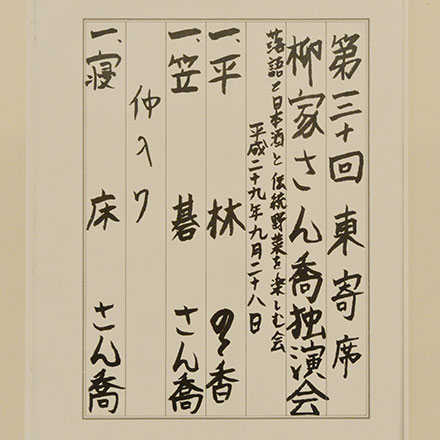 第三十回 東寄席
柳家さん喬独演会
落語と日本酒と伝統野菜を楽しむ会
平成二十九年九月二十八日
一、平林 のゝ香
一、笠碁 さん喬
仲入り
一、寝床 さん喬